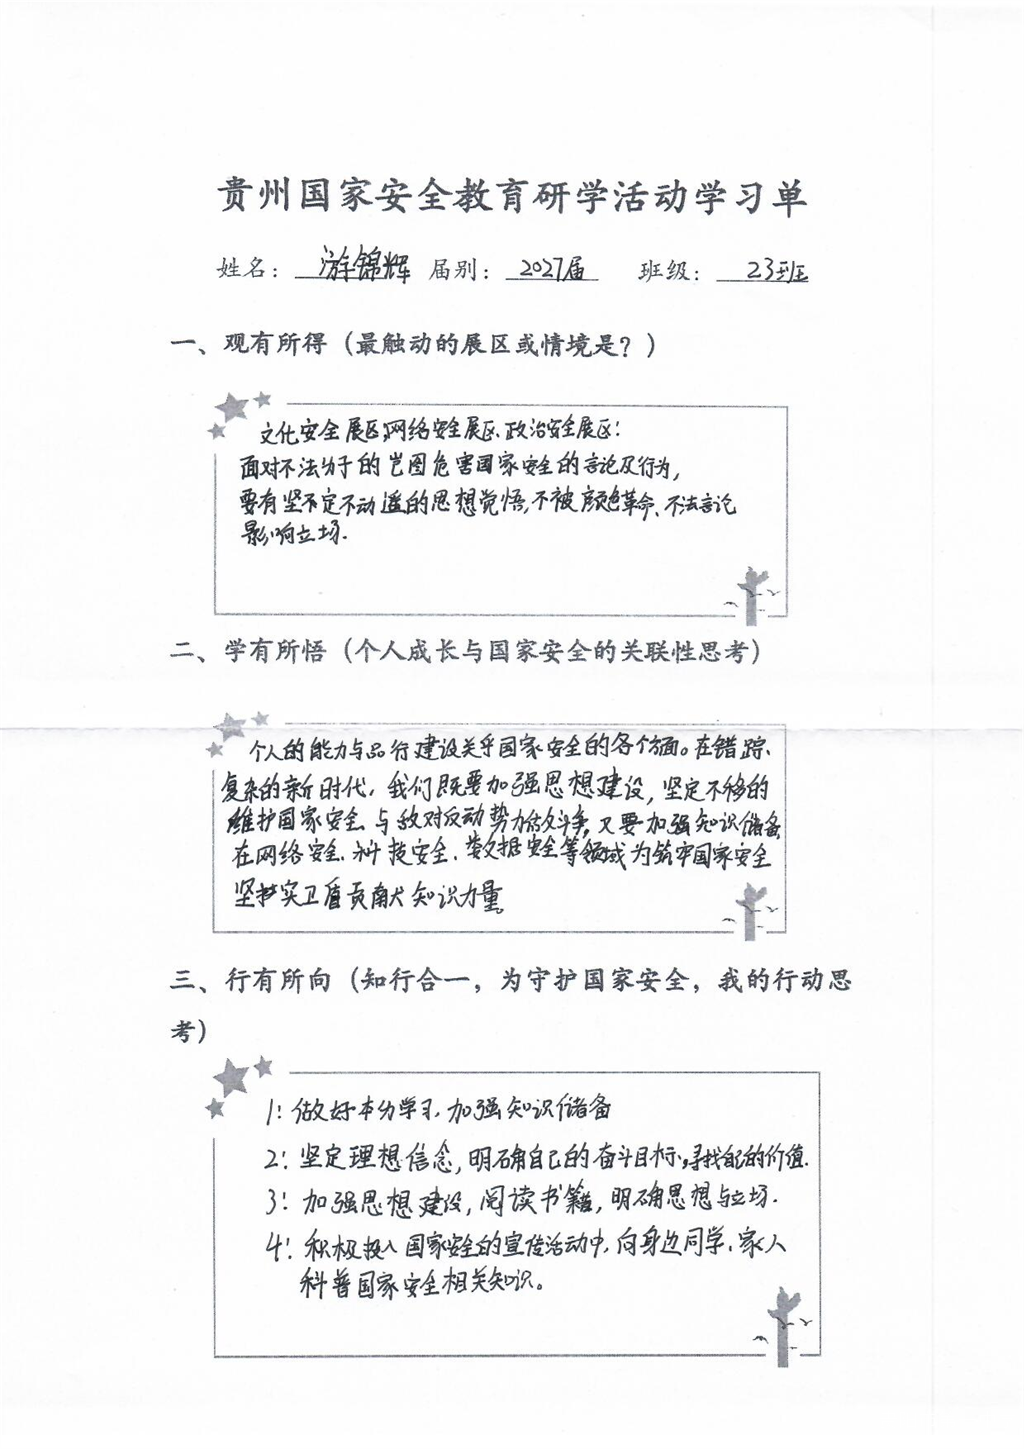 贵州国家安全教育研学活动学习单
姓名：游锦辉 届别：2027届 班级：23班
一、观有所得（最触动的展区或情境是？）
文化安全展区、网络安全展区、政治安全展区！
面对不法分子的岂图危害国家安全的言论及行为，
要有坚不定不动遥的思想觉悟，不被颜色革命、不法言论
影响立场.
二、学有所悟（个人成长与国家安全的关联性思考）
个人的能力与品行建设关乎国家安全的各个方面。在错踪、
复杂的新时代，我们既要加强思想建设，坚定不移的
维护国家安全与敌对反动势力做斗争，又要加强知识储备
在网络安全、科技安全、数据安全等领域为筑牢国家安全
坚实卫盾贡献知识力量。
三、行有所向（知行合一，为守护国家安全，我的行动思
考）
1：做好本分学习，加强知识储备
2：坚定理想信念，明确自己的奋斗目标，寻找自己的价值.
3：加强思想建设，阅读书籍，明确思想与立场.
4：积极投入国家安全的宣传活动中，向身边同学、家人
科普国家安全相关知识。